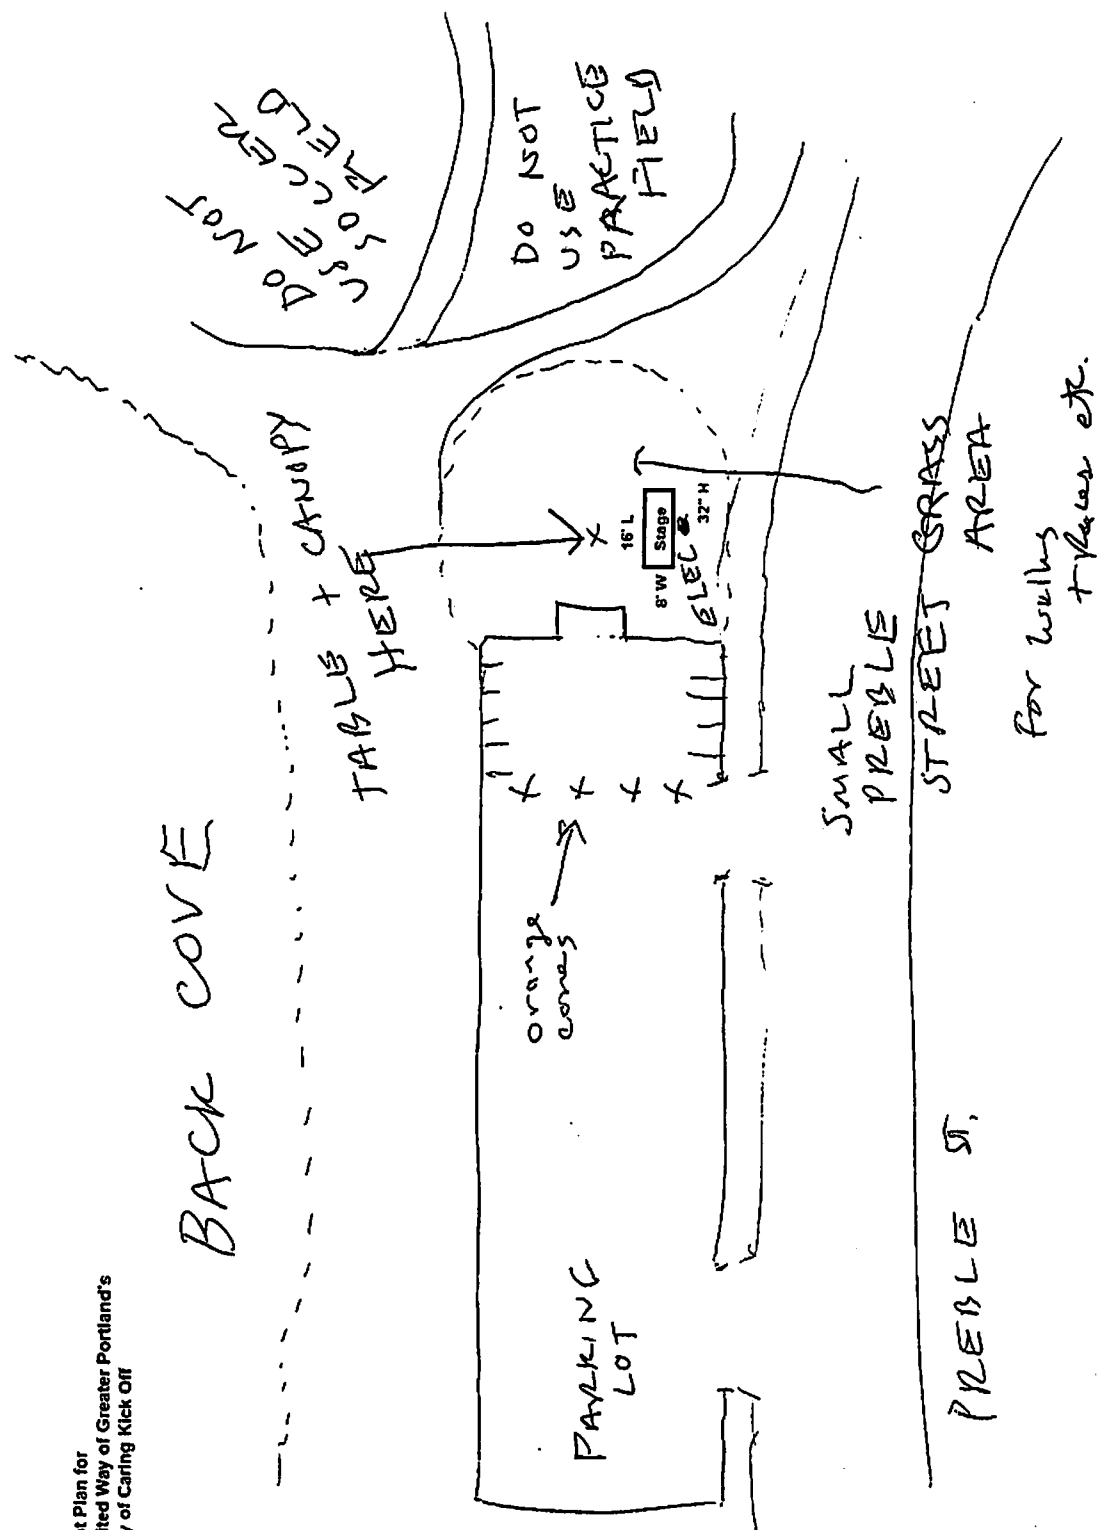 t Plan for
ited Way of Greater Portland's
y of Caring Kick Off
BACK COVE
TABLE + CANOPY
HERE
DO NOT
USE
SOCCER
FIELD
DO NOT
USE
PRACTICE
FIELD
orange
cones
16' L
8' W
Stage
32" H
ELEC
PARKING
LOT
SMALL
PREBLE
STREET GRASS
AREA
PREBLE ST.
for walking
etc.